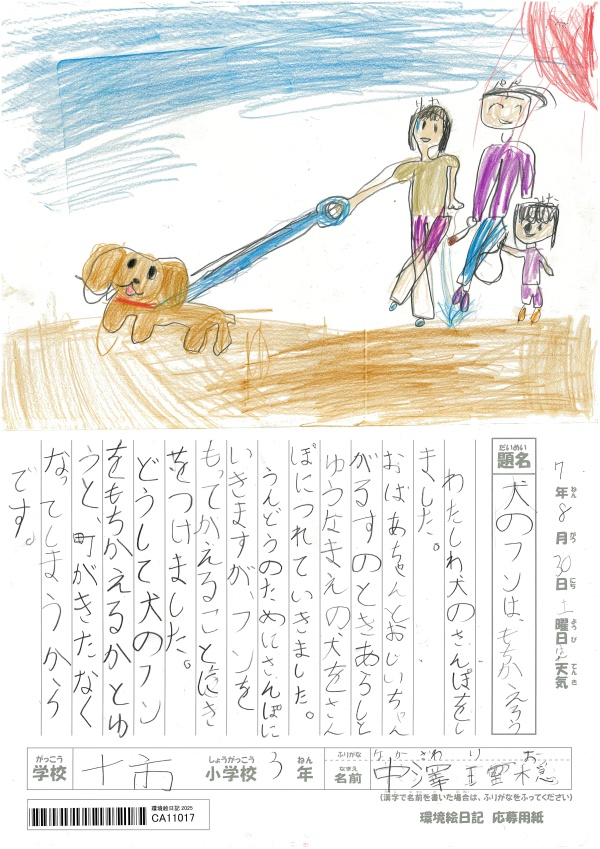 りお
けいた
7年8月30日土曜日 天気
ねん がつ にち ようび てんき
だいめい
題名
犬のフンは、もちかえろう
わたしわ犬のさんぽをし
ました。
おばあちゃんとおじいちゃん
がるすのときあらしと
ゆうなまえの犬をさん
ぽにつれていきました。
うんどうのためにさんぽに
いきますが、フンを
もってかえることにき
をつけました。
どうして犬のフン
をもちかえるかとゆ
うと、町がきたなく
なってしまうから
です。
がっこう
学校
十市
しょうがっこう
小学校
3
ねん
年
ふりがな
なかざわ りお
なまえ
名前
中澤 璃穏
(漢字で名前を書いた場合は、ふりがなをふってください)
環境絵日記2025
CA11017
環境絵日記 応募用紙